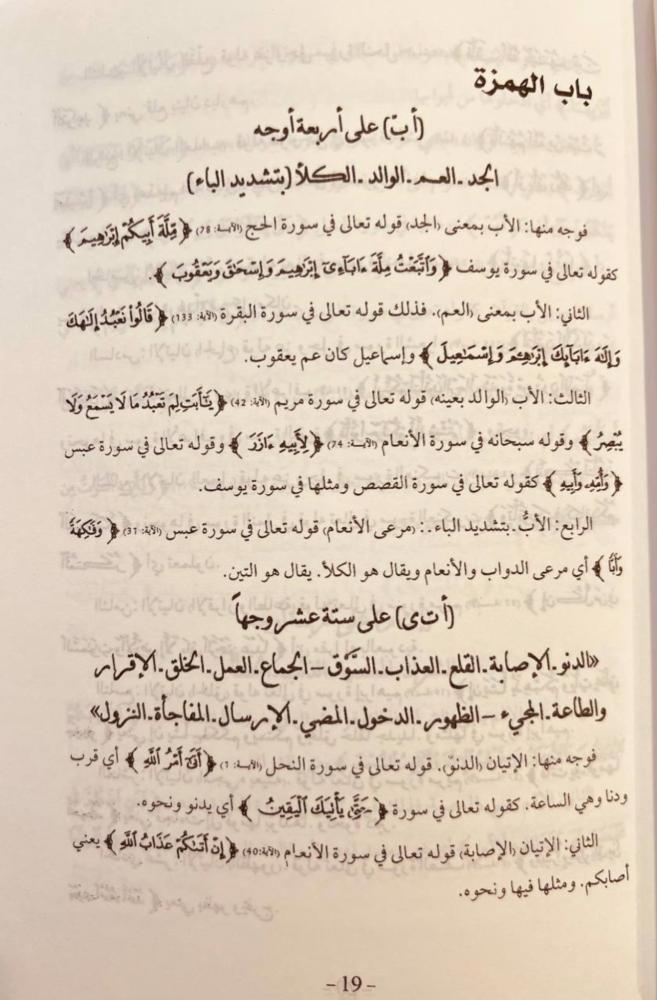 باب الهمزة
(أ ب) على أربعة أوجه
الجد ـ العم ـ الوالد ـ الكلأ (بتشديد الباء)
فوجه منها: الأب بمعنى (الجد) قوله تعالى في سورة الحج (الآية: 78) ﴿ مِّلَّةَ أَبِيكُمْ إِبْرَٰهِيمَ ﴾
كقوله تعالى في سورة يوسف ﴿ وَٱتَّبَعْتُ مِلَّةَ ءَابَآءِىٓ إِبْرَٰهِيمَ وَإِسْحَٰقَ وَيَعْقُوبَ ﴾.
الثاني: الأب بمعنى (العم). فذلك قوله تعالى في سورة البقرة (الآية: 133) ﴿ قَالُوا۟ نَعْبُدُ إِلَٰهَكَ
وَإِلَٰهَ ءَابَآئِكَ إِبْرَٰهِيمَ وَإِسْمَٰعِيلَ ﴾ وإسماعيل كان عم يعقوب.
الثالث: الأب (الوالد بعينه) قوله تعالى في سورة مريم (الآية: 42) ﴿ يَٰٓأَبَتِ لِمَ تَعْبُدُ مَا لَا يَسْمَعُ وَلَا
يُبْصِرُ ﴾ وقوله سبحانه في سورة الأنعام (الآية: 74) ﴿ لِأَبِيهِ ءَازَرَ ﴾ وقوله تعالى في سورة عبس
﴿ وَأُمِّهِۦ وَأَبِيهِ ﴾ كقوله تعالى في سورة القصص ومثلها في سورة يوسف.
الرابع: الأبُّ ـ بتشديد الباء ـ: (مرعى الأنعام) قوله تعالى في سورة عبس (الآية: 31) ﴿ وَفَٰكِهَةً
وَأَبًّا ﴾ أي مرعى الدواب والأنعام ويقال هو الكلأ. يقال هو التين.
(أ ت ى) على ستة عشر وجهاً
«الدنو ـ الإصابة ـ القلع ـ العذاب ـ السَّوْق – الجماع ـ العمل ـ الخلق ـ الإقرار
والطاعة ـ المجيء – الظهور ـ الدخول ـ المضي ـ الإرسال ـ المفاجأة ـ النزول»
فوجه منها: الإتيان (الدنو). قوله تعالى في سورة النحل (الآية: 1) ﴿ أَتَىٰٓ أَمْرُ ٱللَّهِ ﴾ أي قرب
ودنا وهي الساعة. كقوله تعالى في سورة ﴿ حَتَّىٰ يَأْتِيَكَ ٱلْيَقِينُ ﴾ أي يدنو ونحوه.
الثاني: الإتيان (الإصابة) قوله تعالى في سورة الأنعام (الآية: 40) ﴿ إِنْ أَتَىٰكُمْ عَذَابُ ٱللَّهِ ﴾ يعني
أصابكم. ومثلها فيها ونحوه.
- 19 -